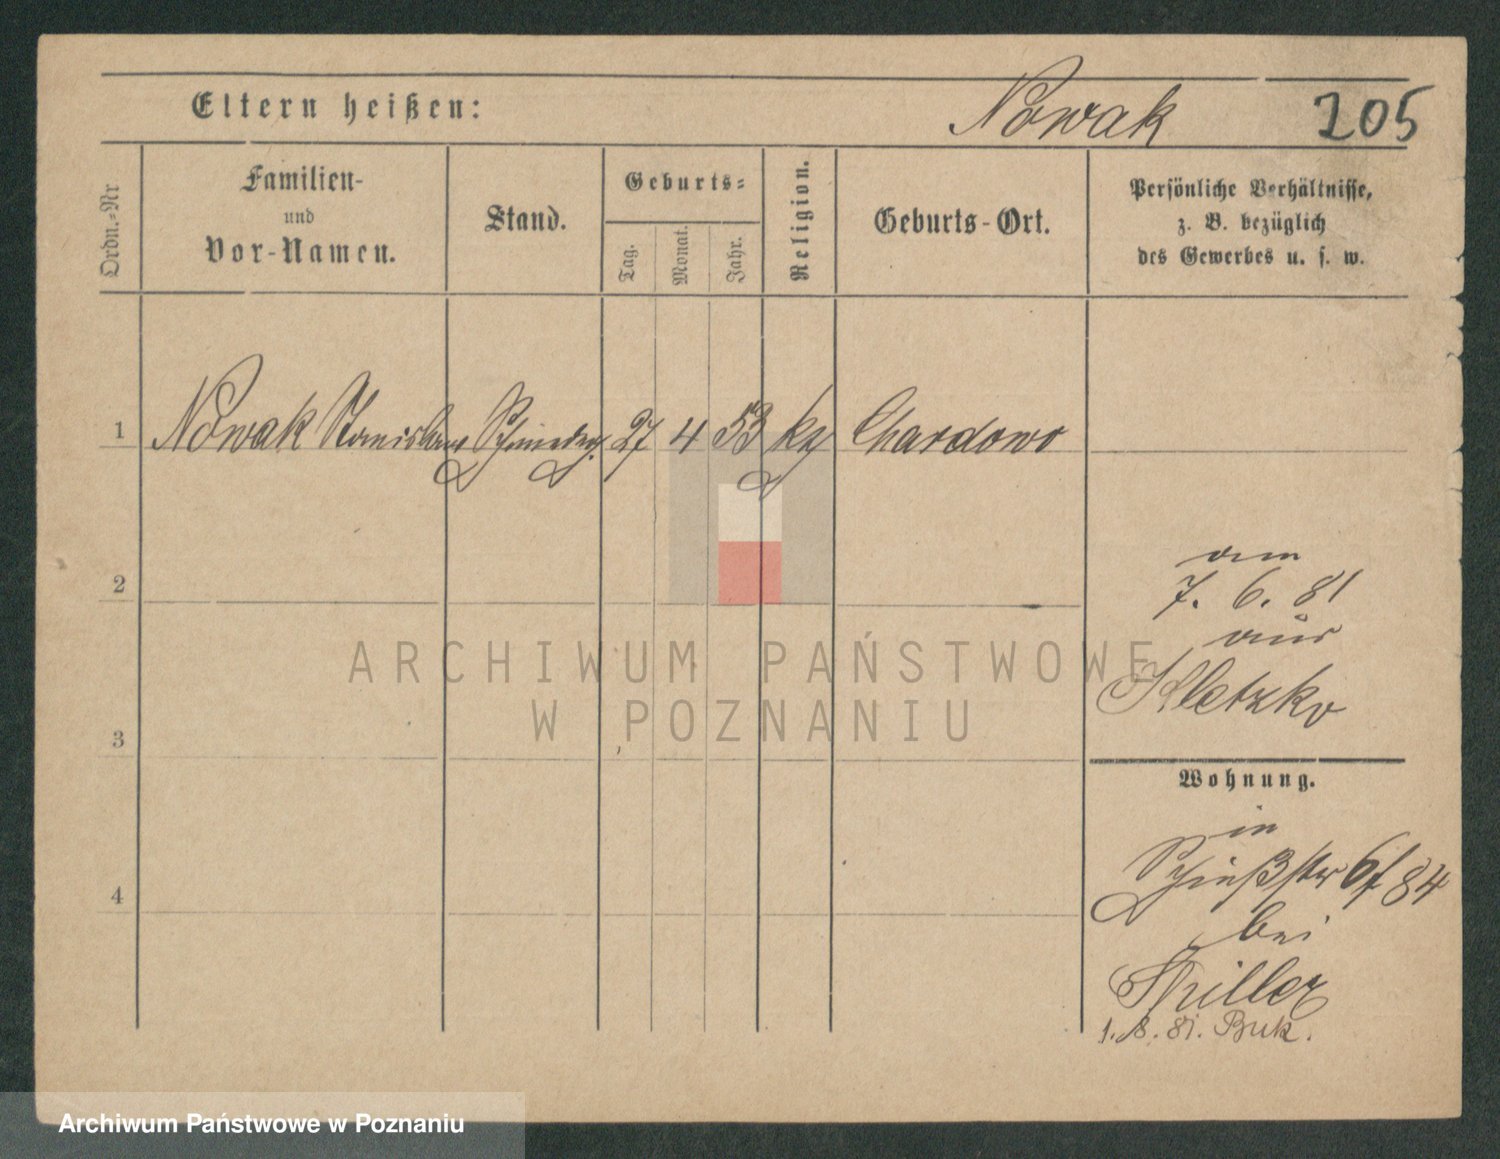 Eltern heißen:
Nowak
205
Ordn.-Nr
Familien-
und
Vor-Namen.
Stand.
Geburts-
Tag.
Monat.
Jahr.
Religion.
Geburts-Ort.
Persönliche Verhältnisse,
z. B. bezüglich
des Gewerbes u. s. w.
1 Nowak Stanislaus 27 4 53 Chardowo
2
am
7. 6. 81
aus
Kletzko
3
Wohnung.
in
Schießstr 6 84
4
bei
1. 8. 81. Buk.
ARCHIWUM PAŃSTWOWE
W POZNANIU
Archiwum Państwowe w Poznaniu